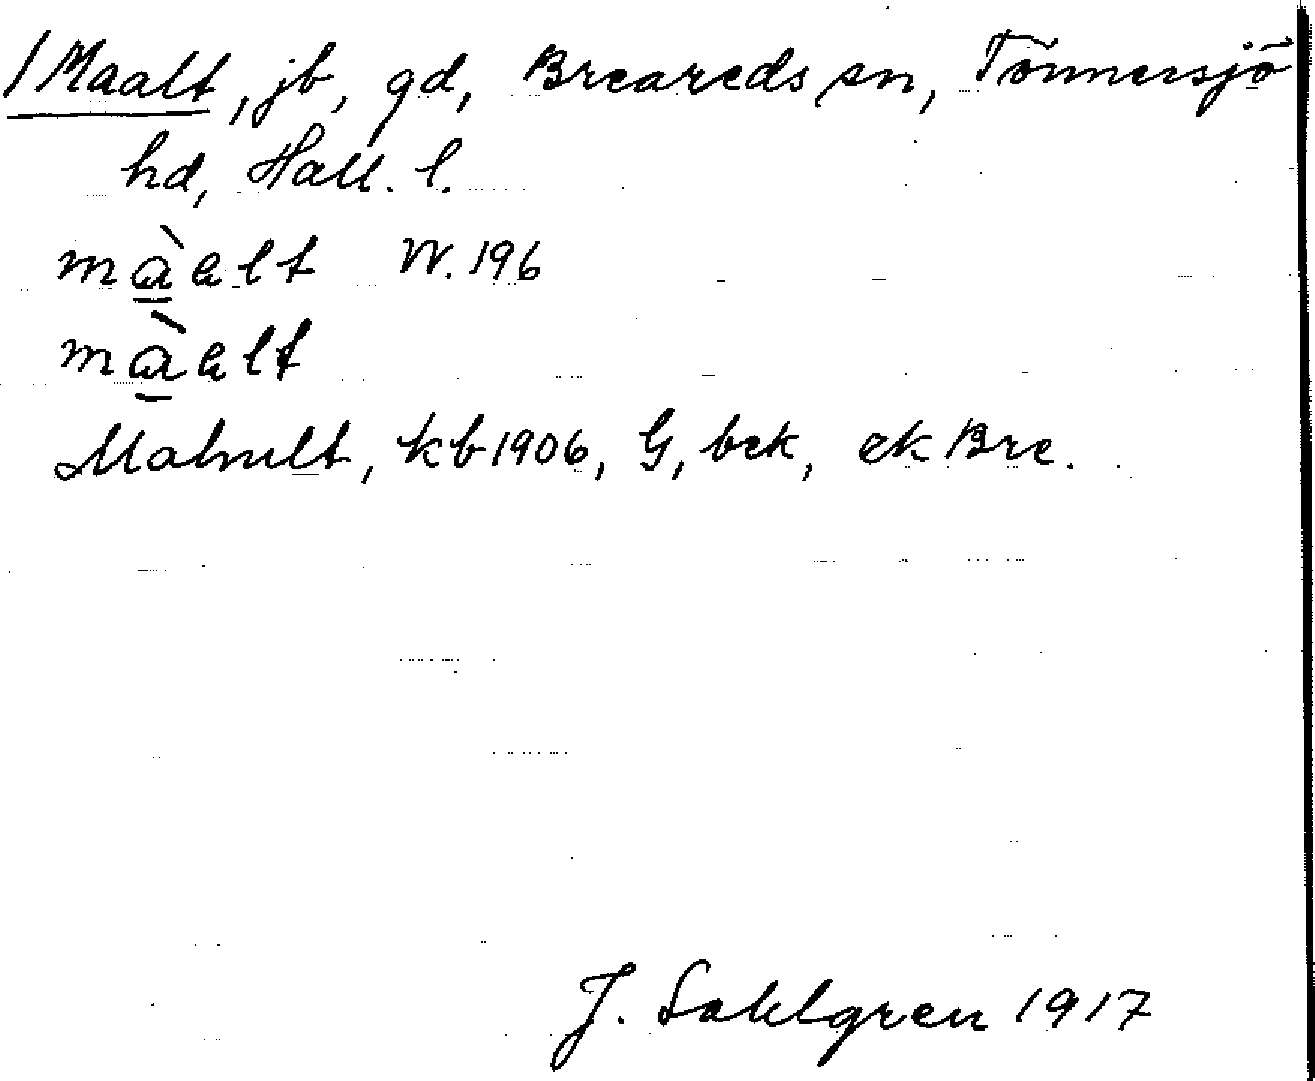 /Maalt, jb, gd, Breareds sn, Tönnersjö
hd, Hall. l.
màalt W. 196
màalt
Mahult, kb 1906, G, bek, ek Bre.
J. Sahlgren 1917